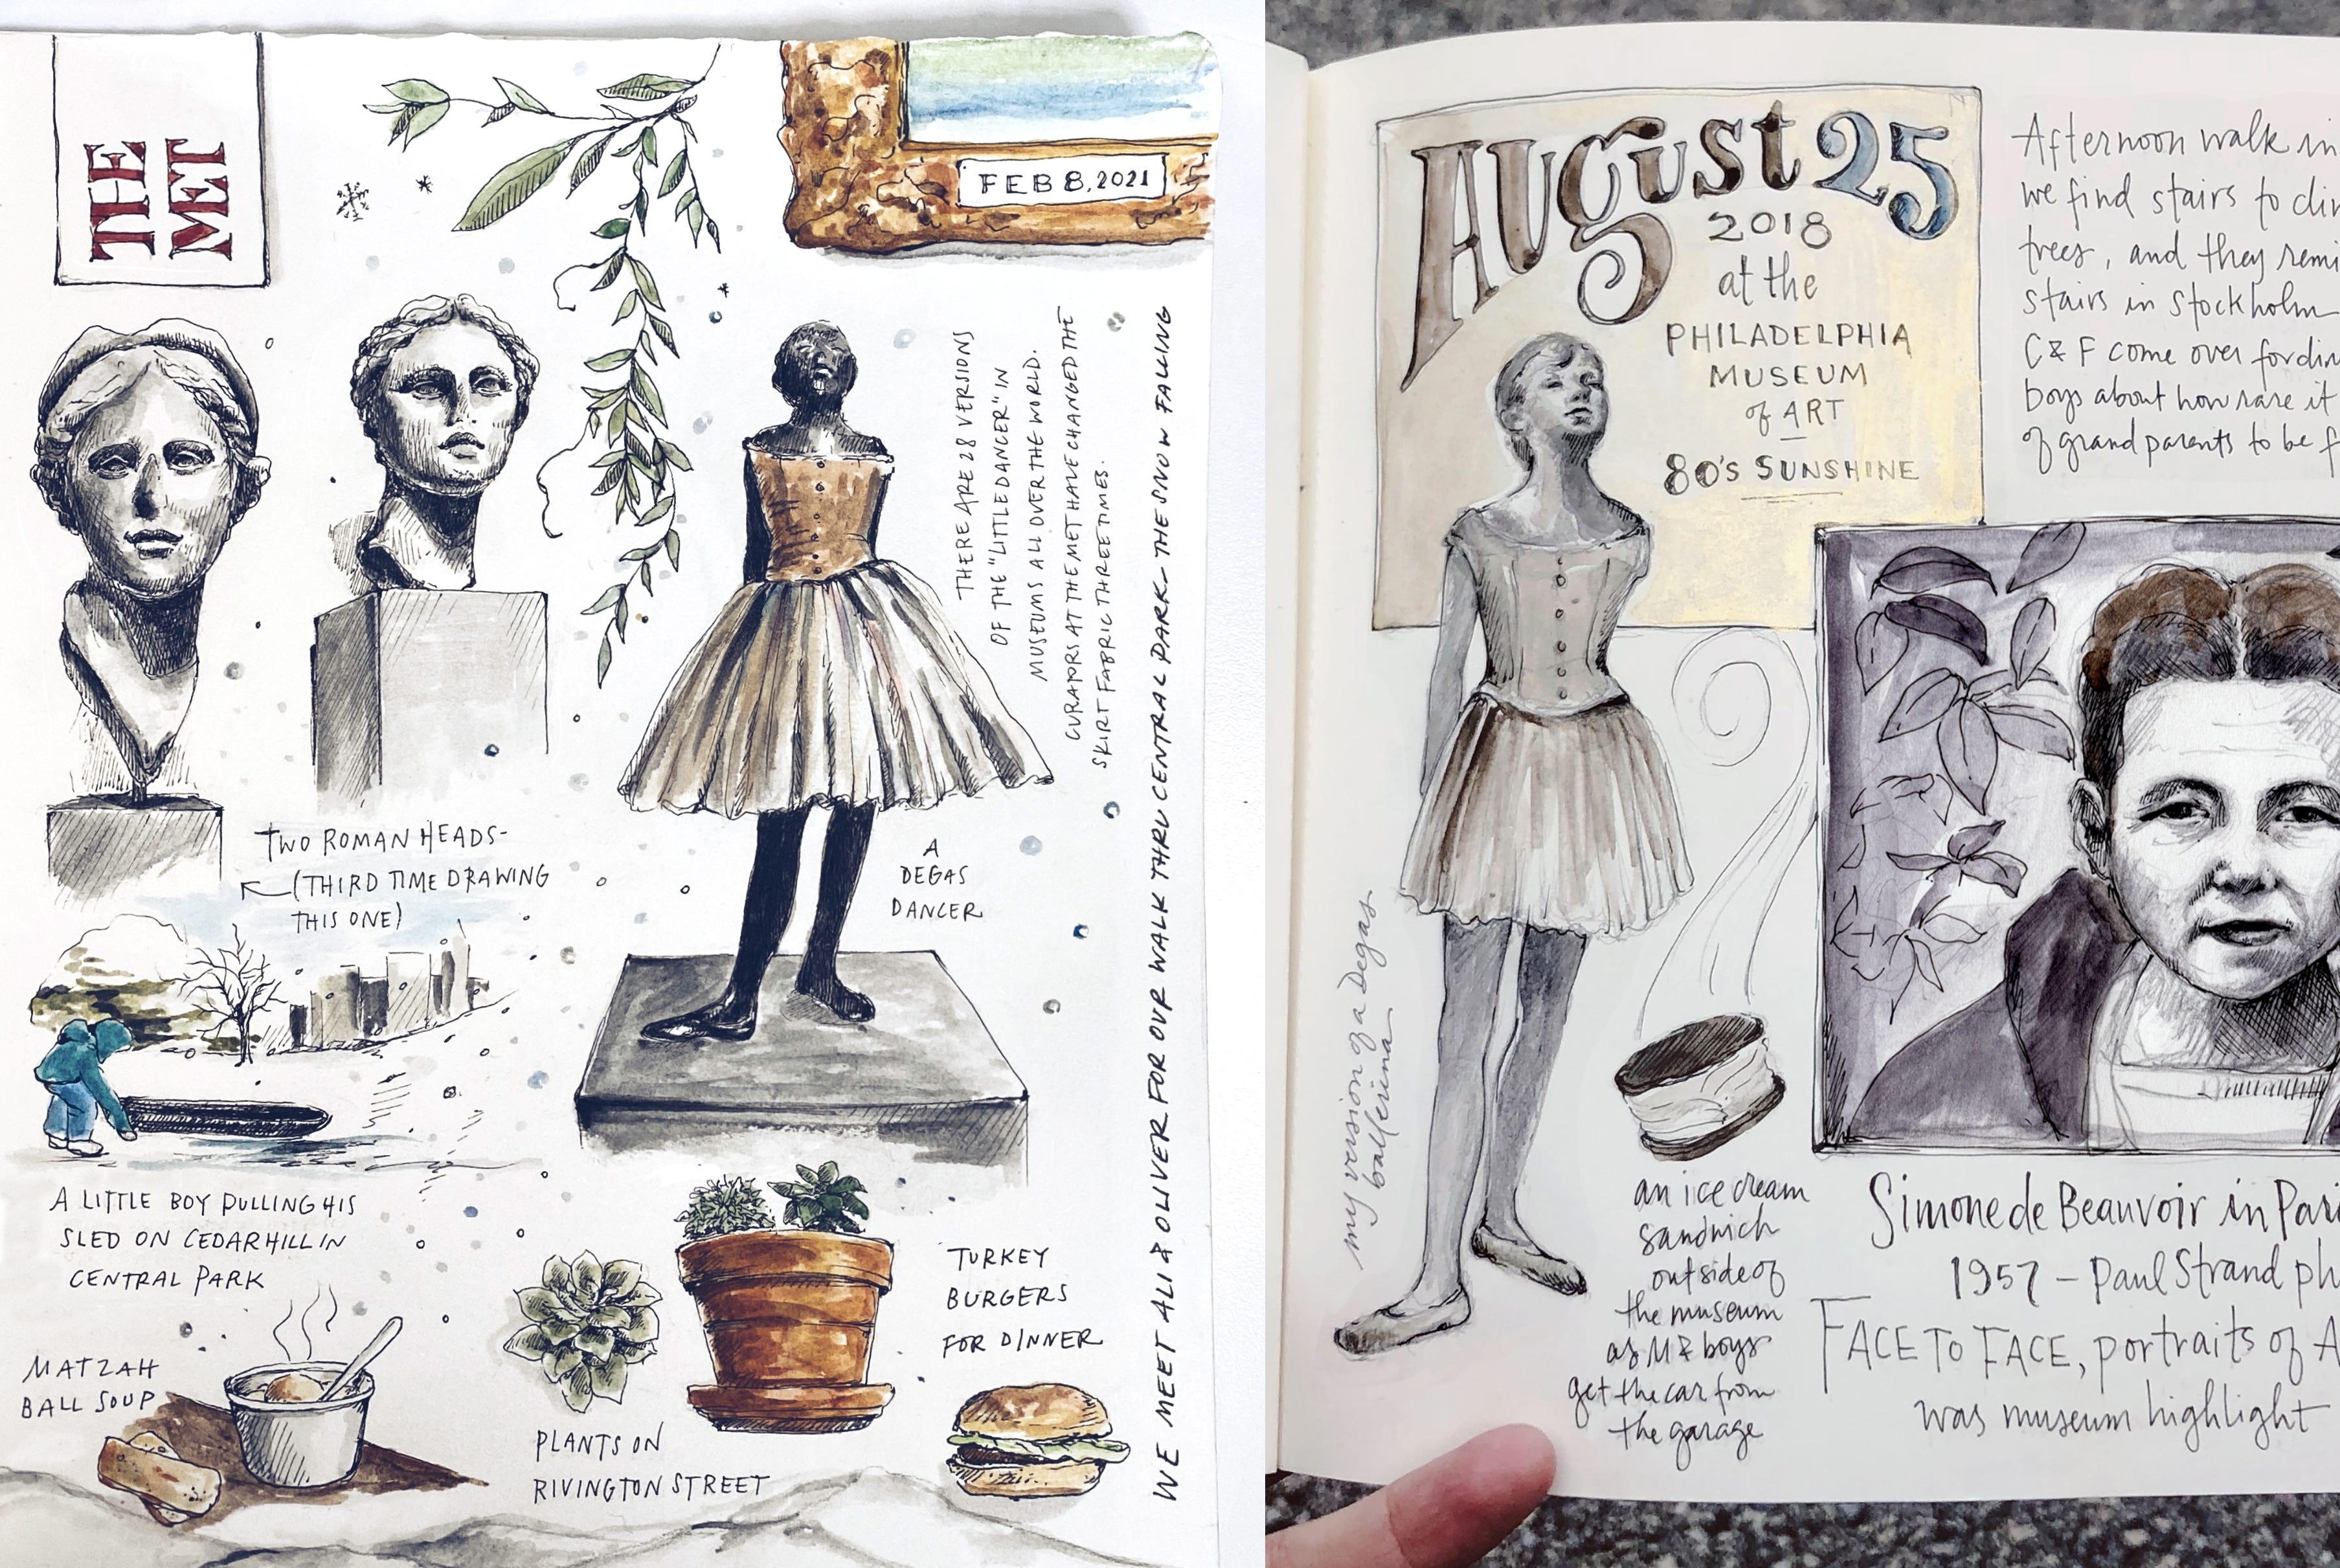 THE
MET
FEB 8, 2021
THERE ARE 28 VERSIONS
OF THE "LITTLE DANCER" IN
MUSEUMS ALL OVER THE WORLD.
CURATORS AT THE MET HAVE CHANGED THE
SKIRT FABRIC THREE TIMES.
WE MEET ALI & OLIVER FOR OUR WALK THRU CENTRAL PARK - THE SNOW FALLING
TWO ROMAN HEADS-
(THIRD TIME DRAWING
THIS ONE)
A
DEGAS
DANCER
A LITTLE BOY PULLING HIS
SLED ON CEDAR HILL IN
CENTRAL PARK
MATZAH
BALL SOUP
PLANTS ON
RIVINGTON STREET
TURKEY
BURGERS
FOR DINNER
August 25
2018
at the
PHILADELPHIA
MUSEUM
of ART
80'S SUNSHINE
Afternoon walk in
we find stairs to
trees, and they
stairs in Stockholm
C & F come over for
boys about how rare it
of grandparents to be
my version of a Degas
ballerina
an ice cream
sandwich
outside of
the museum
as M & boys
get the car from
the garage
Simone de Beauvoir in
1957 - Paul Strand
FACE TO FACE, portraits of
was museum highlight